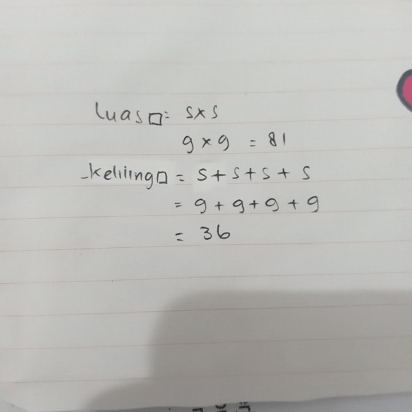 Luas□ = s×s
9 × 9 = 81
-keliling□ = s + s + s + s
= 9 + 9 + 9 + 9
= 36